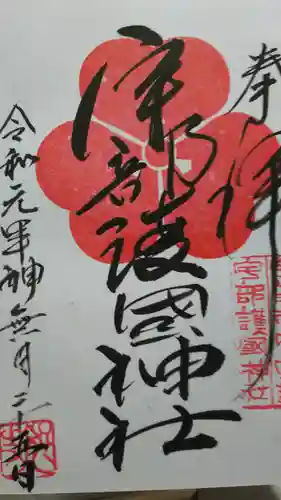 奉拝
宇部護國神社
宇部護國神社
令和元年神無月二十五日